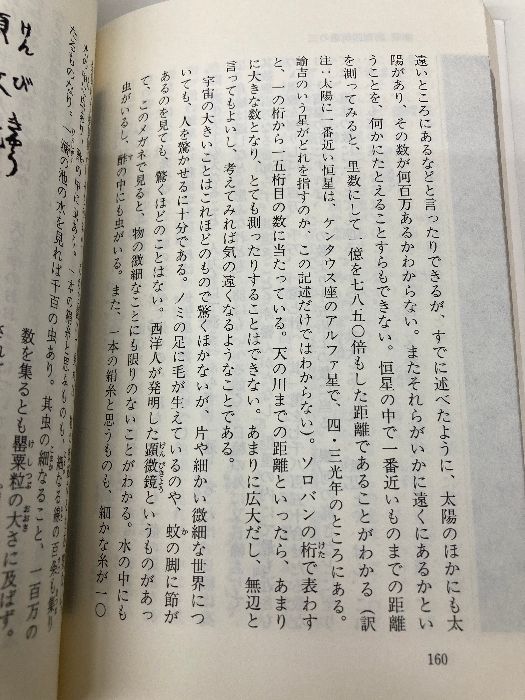 遠いところにあるなどと言ったりできるが、すでに述べたように、太陽のほかにも太
陽があり、その数が何百万あるかわからない。またそれらがいかに遠くにあるかとい
うことを、何かにたとえることすらもできない。恒星の中で一番近いものまでの距離
を測ってみると、里数にして一億を七八五〇倍もした距離であることがわかる（訳
注：太陽に一番近い恒星は、ケンタウス座のアルファ星で、四・三光年のところにある。
諭吉のいう星がどれを指すのか、この記述だけではわからない）。ソロバンの桁で表わす
と、一の桁から一五桁目の数に当たっている。天の川までの距離といったら、あまり
に大きな数となり、とても測ったりすることはできない。あまりに広大だし、無辺と
言ってもよいし、考えてみれば気の遠くなるようなことである。
宇宙の大きいことはこれほどのもので驚くほかないが、片や細かい微細な世界につ
いても、人を驚かせるに十分である。ノミの足に毛が生えているのや、蚊の脚に節が
あるのを見ても、驚くほどのことはない。西洋人が発明した顕微鏡というものがあっ
て、このメガネで見ると、物の微細なことにも限りのないことがわかる。水の中にも
虫がいるし、酢の中にも虫がいる。また、一本の絹糸と思うものも、細かな糸が一〇
160
けんびきやう
の池の水を見れば千百の虫あり。其虫の細なること、一百万の
数を集るとも罌粟粒の大さに及ばず。